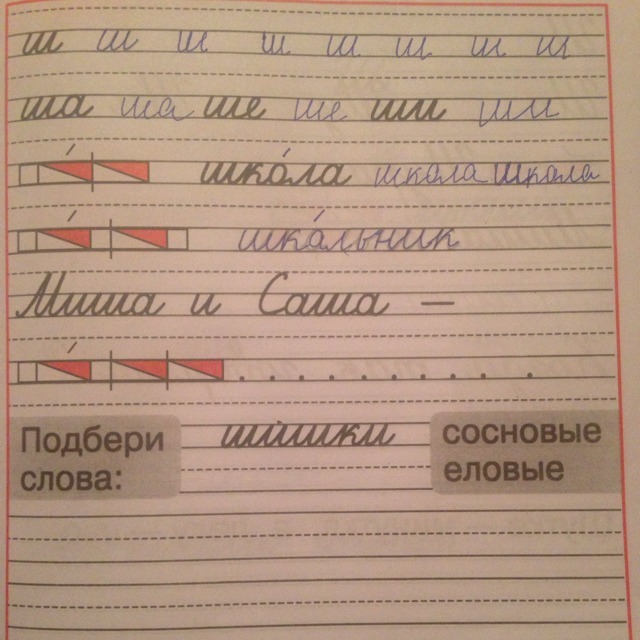 ш ш ш ш ш ш ш ш
ша ша ше ше ши ши
шко́ла школа школа
шко́льник
Миша и Саша —
Подбери слова:
ши́шки
сосновые
еловые